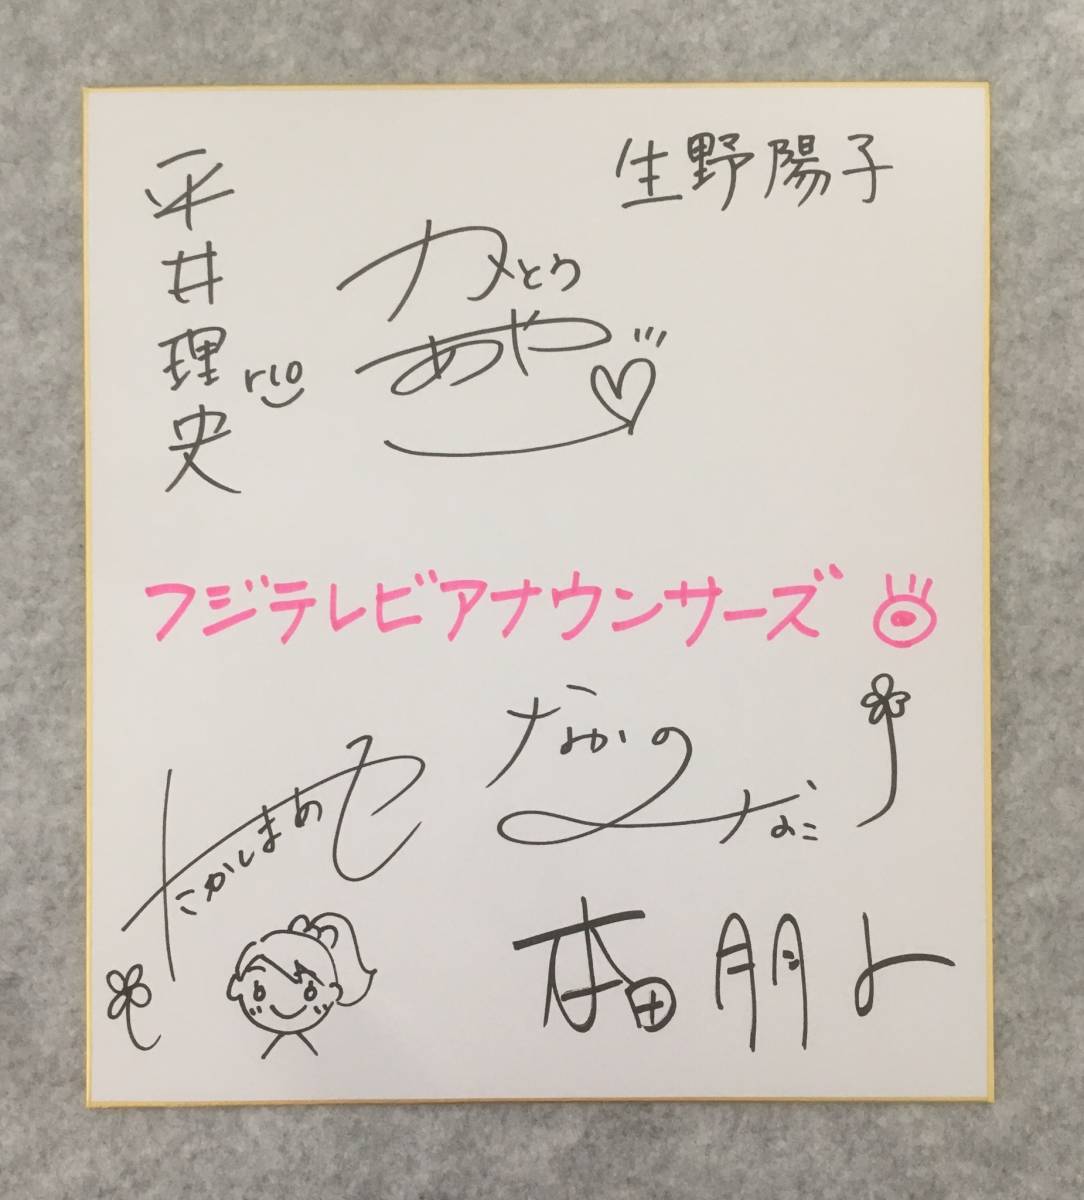 生野陽子
平井理央
rio
かとう
あや
フジテレビアナウンサーズ
たかしまあや
なかの
なこ
本田朋子